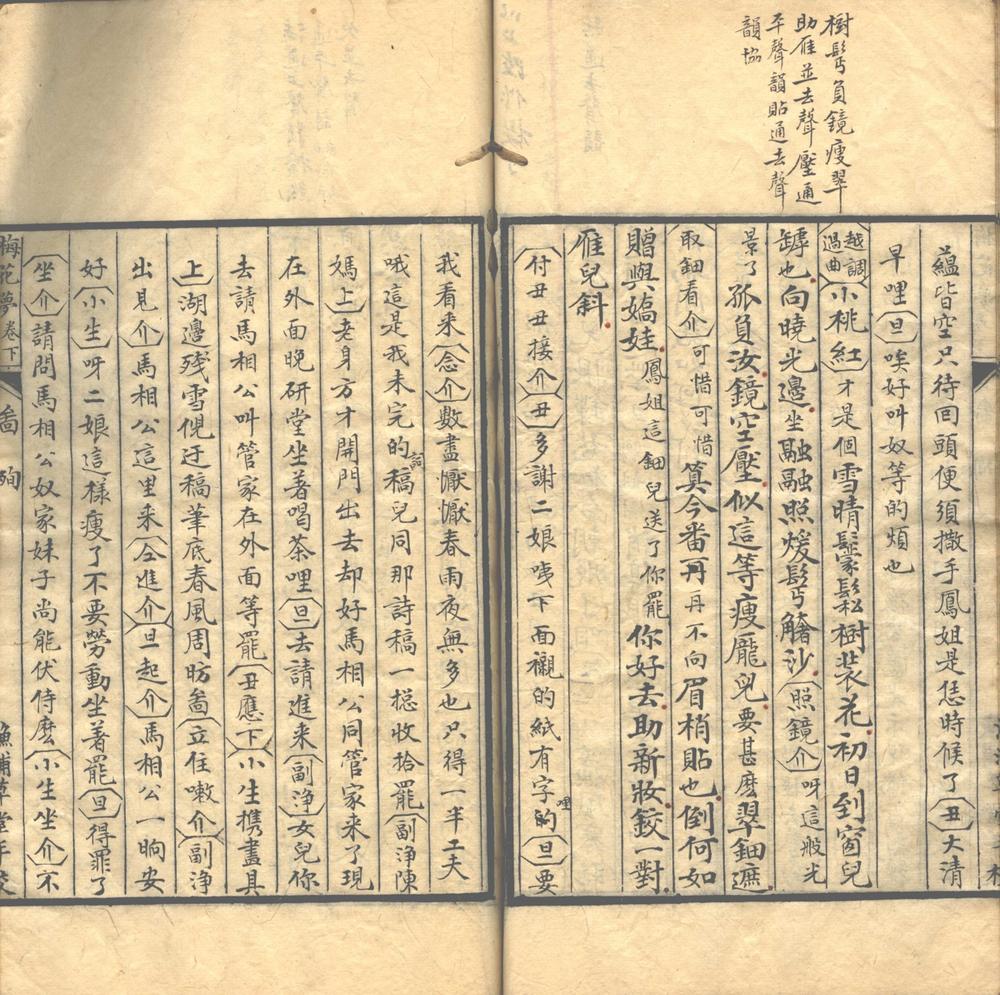 樹髩負鏡瘦翠
助雁並去聲壓通
平聲韻貼通去聲
韻協
蘊皆空只待回頭便須撒手鳳姐是恁時候了丑大清
早哩旦唉好叫奴等的煩也
越調過曲小桃紅才是個雪晴鬟鬆樹裝花初日到窗兒
罅也向曉光邊坐融融照煖髩䰀沙照鏡介呀這般光
景了孤負汝鏡空壓似這等瘦龐兒要甚麽翠鈿遮
取鈿看介可惜可惜算今番再再不向眉梢貼也倒何如
贈與嬌娃鳳姐這鈿兒送了你罷你好去助新妝鉸一對
雁兒斜
付丑丑接介丑多謝二娘咦下面襯的紙有字的哩旦要
我看來念介數盡懨懨春雨夜無多也只得一半工夫
哦這是我未完的詞稿兒同那詩稿一摠收拾罷副淨陳
媽上老身方才開門出去却好馬相公同管家來了現
在外面晚研堂坐著喝茶哩旦去請進來副淨女兒你
去請馬相公叫管家在外面等罷丑應下小生携畫具
上湖邊殘雪俔迂稿筆底春風周昉畵立住嗽介副淨
出見介馬相公這里來仝進介旦起介馬相公一晌安
好小生呀二娘這樣瘦了不要勞動坐著罷旦得罪了
坐介請問馬相公奴家妹子尚能伏侍麽小生坐介不
梅花夢卷下 畵殉